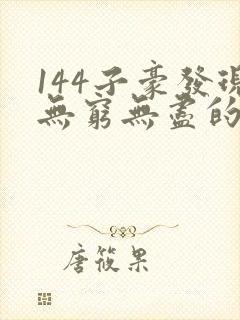 144子豪發現
無窮無盡的
唐筱果